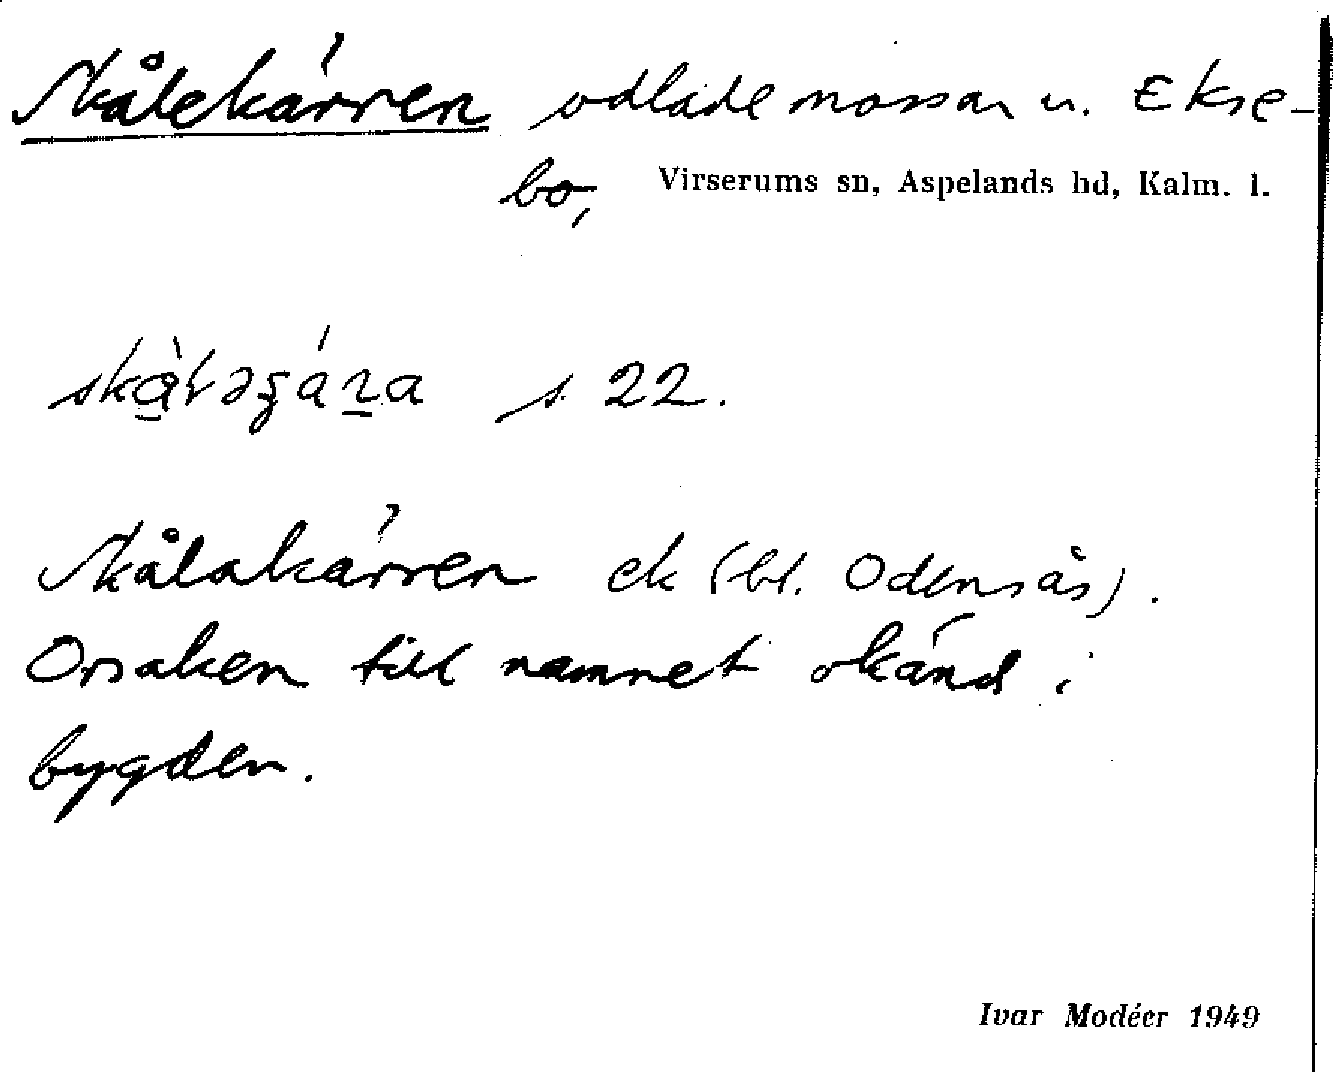 Skålekärren odlade mossar u. Ekse-
bo, Virserums sn, Aspelands hd, Kalm. l.
s 22.
Skålakärren ek (bl. Odensås).
Orsaken till namnet okänd i
bygden.
Ivar Modéer 1949